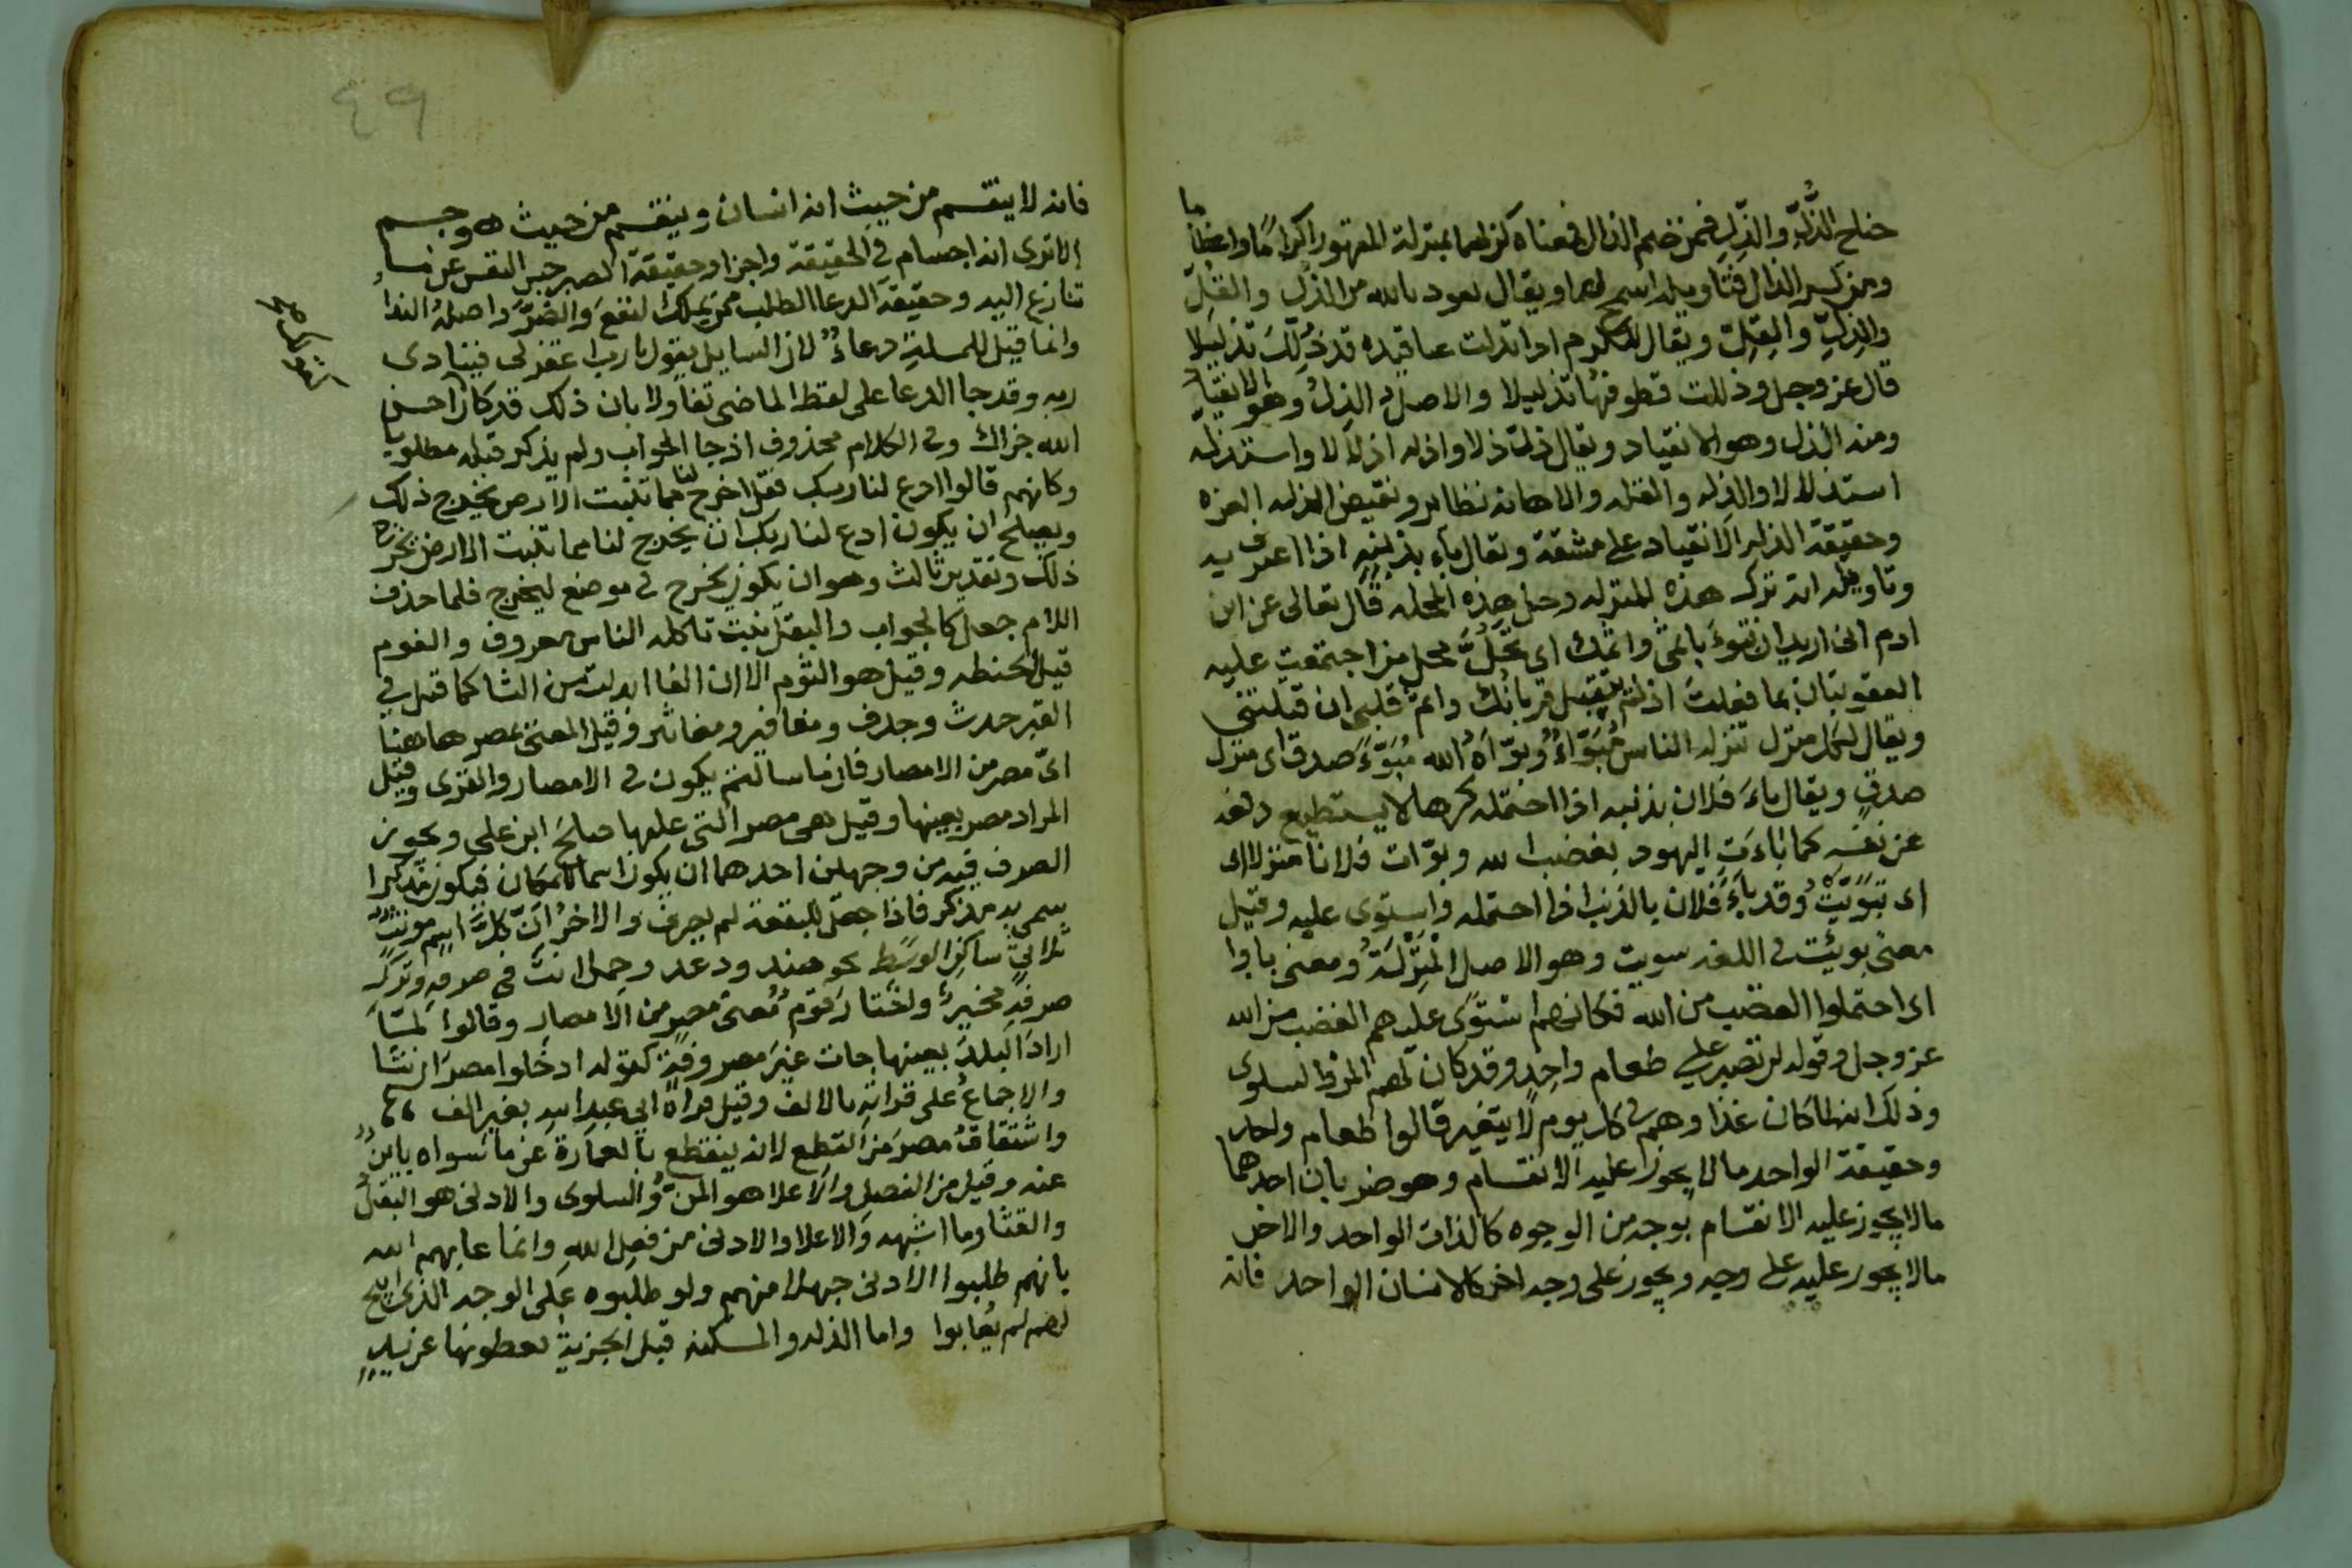 جناح الذُّلّ والذِّلّ فمن ضم الذال فمعناه كن لهما بمنزلة المقهور اكرامًا واعظاما
ومن كسر الذال فتاويله اسمح لهما ويقال نعود بالله من الذُّلّ والقُلّ
والذِلّ والقِلّ ويقال للكرم اذا تدلت عناقيده قد ذُلِّلَ تذليلا
قال عز وجل وذللت قطوفها تذليلا والاصل في الذل وهو الانقياد
ومنه الذل وهو الانقياد ويقال ذل ذلا واذله اذلالا واستذله
استذلالا والذله والقله والاهانه نظاير ونقيض الذله العزه
وحقيقة الذله الانقياد على مشقة ويقال باء بذنبه اذا اعترف به
وتاويله انه نزل هذه المنزله وحل هذه المحله قال تعالى عن ابن
ادم اني اريد ان تبوء باثمي واثمك اي تحل محل من اجتمعت عليه
العقوبتان بما فعلت اذ لم يتقبل قربانك واثم قتلي ان قتلتني
ويقال لكل منزل تنزله الناس مُبَوّاء وبوّاه الله مُبَوّءَ صدق اي منزل
صدق ويقال باءَ فلان بذنبه اذا احتمله كرها لا يستطيع دفعه
عن نفسه كما باءت اليهود بغضب الله وبوّات فلانا منزلا اي
اي تبويت وقد باءَ فلان بالذنب اذا احتمله واستوى عليه وقيل
معنى بويت في اللغه سويت وهو الاصل المنزلة ومعنى باوا
اي احتملوا الغضب من الله فكانهم استوى عليهم الغضب من الله
عز وجل وقوله لن نصبر على طعام واحد وقد كان لهم المن والسلوى
وذلك انها كان غذاوهم في كل يوم لا يتغير قالوا طعام واحد
وحقيقة الواحد ما لا يجوز عليه الانقسام وهو ضربان احدهما
مالا يجوز عليه الانقسام بوجه من الوجوه كالذات الواحد والاخر
مالا يجوز عليه على وجه ويجوز على وجه اخر كالانسان الواحد فانه
٤٩
فانه لا ينقسم من حيث انه انسان وينقسم من حيث هو جسم
الا ترى انه اجسام في الحقيقة واجزا وحقيقة الصبر حبس النفس عن ما
تنازع اليه وحقيقة الدعا الطلب ممن يملك النفع والضرّ واصله الندا
وانما قيل للمسلة دعاء لان السايل يقول يا رب اغفر لي فينادي
ربه وقد جا الدعا على لفظ الماضي تفاولا بان ذلك قد كان احسن
الله جزاك وفي الكلام محذوف اذ جا الجواب ولم يذكر قبله مطلوبا
وكانهم قالوا ادع لنا ربك فقل اخرج لنا مما تنبت الارض يخرج ذلك
ويصلح ان يكون ادع لنا ربك ان يخرج لنا مما تنبت الارض يخرج
ذلك وتقدير ثالث وهو ان يكون يخرج في موضع ليخرج فلما حذف
اللام جعل كالجواب والبقل نبت تاكله الناس معروف والفوم
قيل الحنطه وقيل هو الثوم الا ان الفا ابدلت من الثا كما قيل في
القبر جدث وجدف ومغافير ومغاثير وقيل المعنى بمصر هاهنا
ايّ مصر من الامصار فان ما سالتم يكون في الامصار والقرى وقيل
المراد مصر بعينها وقيل هي مصر التي عليها صالح ابن علي ويجوز
الصرف فيه من وجهين احدهما ان يكون اسما للمكان فيكون مذكرا
سمي به مذكر فاذا جعل للبقعة لم يصرف والاخر ان كل اسم مونث
ثلاثي ساكن الوسط نحو هند ودعد وجمل انت في صرفه وترك
صرفه مخير واختار قوم معنى مصر من الامصار وقالوا لمّا
اراد البلد بعينها جات غير مصروفة كقوله ادخلوا مصر ان شا
والاجماع على قراته بالالف وقيل قراة ابي عبد الله بغير الف
واشتقاق مصر من القطع لانه ينقطع بالعمارة عن ما سواه باين
عنه وقيل من الفصل والاعلا هو المن والسلوى والادنى هو البقل
والقثا وما اشبهه والاعلا والادنى من فعل الله وانما عابهم الله
بانهم طلبوا الادنى جهلا منهم ولو طلبوه على الوجه الذي ابيح
لهم لم يعابوا واما الذله والمسكنه قيل الجزية يعطونها عن يد